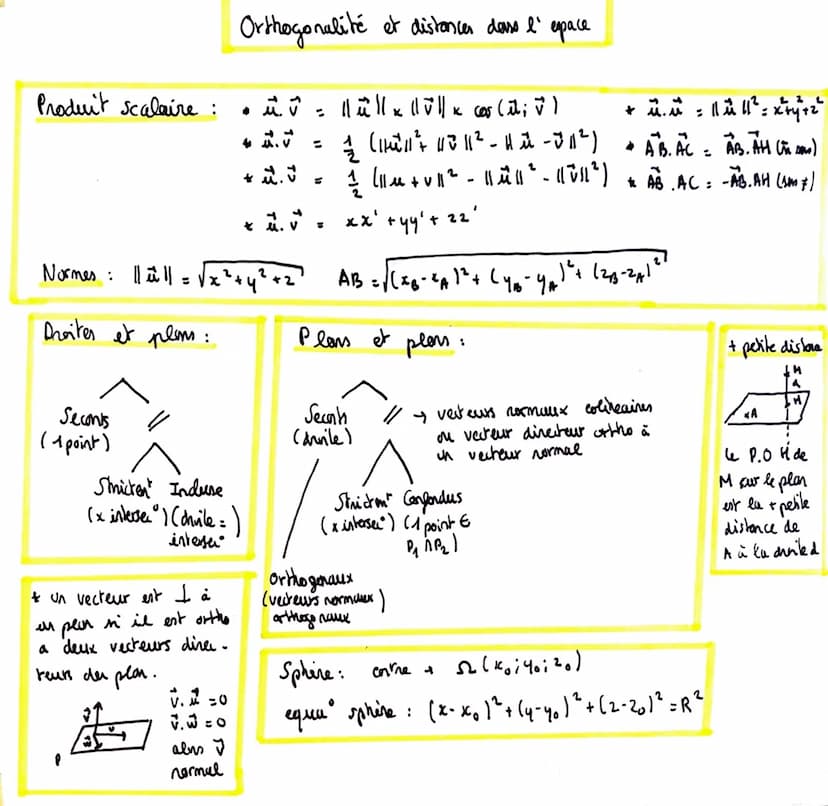 Orthogonalité et distances dans l'espace
Produit scalaire :
• u⃗.v⃗ = ||u⃗|| x ||v⃗|| x cos(u⃗; v⃗)
• u⃗.v⃗ = 1/2 (||u⃗||² + ||v⃗||² - ||u⃗ - v⃗||²)
* u⃗.v⃗ = 1/2 (||u + v||² - ||u⃗||² - ||v⃗||²)
* u⃗.v⃗ = xx' + yy' + zz'
* u⃗.u⃗ = ||u⃗||² = x²+y²+z²
* AB⃗.AC⃗ = AB⃗.AH⃗ (m̂ sens)
* AB⃗.AC = -AB⃗.AH (sens ≠)
Normes : ||u⃗|| = √(x²+y²+z²)
AB = √((xB-xA)² + (yB-yA)² + (zB-zA)²)
Droites et plans :
Sécants //
(1 point)
Strictem^t Incluse
(x intersec°) (droite =
intersec°
Plans et plans :
Sécants // → vecteurs normaux colinéaires
(droite) ou vecteur directeur ortho à
un vecteur normal
Strictem^t Confondus
(x intersec°) (1 point ∈
P₁ ∩ P₂)
Orthogonaux
(vecteurs normaux)
orthogonaux
+ petite distance
M
H
xA
Le P.O H de
M sur le plan
est la + petite
distance de
A à la droite d
* un vecteur est ⊥ à
un plan si il est ortho
a deux vecteurs direc-
teurs du plan.
v⃗.u⃗ = 0
v⃗.w⃗ = 0
alors v⃗
normal
P
Sphère : centre → Ω(x₀; y₀; z₀)
equa° sphère : (x-x₀)² + (y-y₀)² + (z-z₀)² = R²